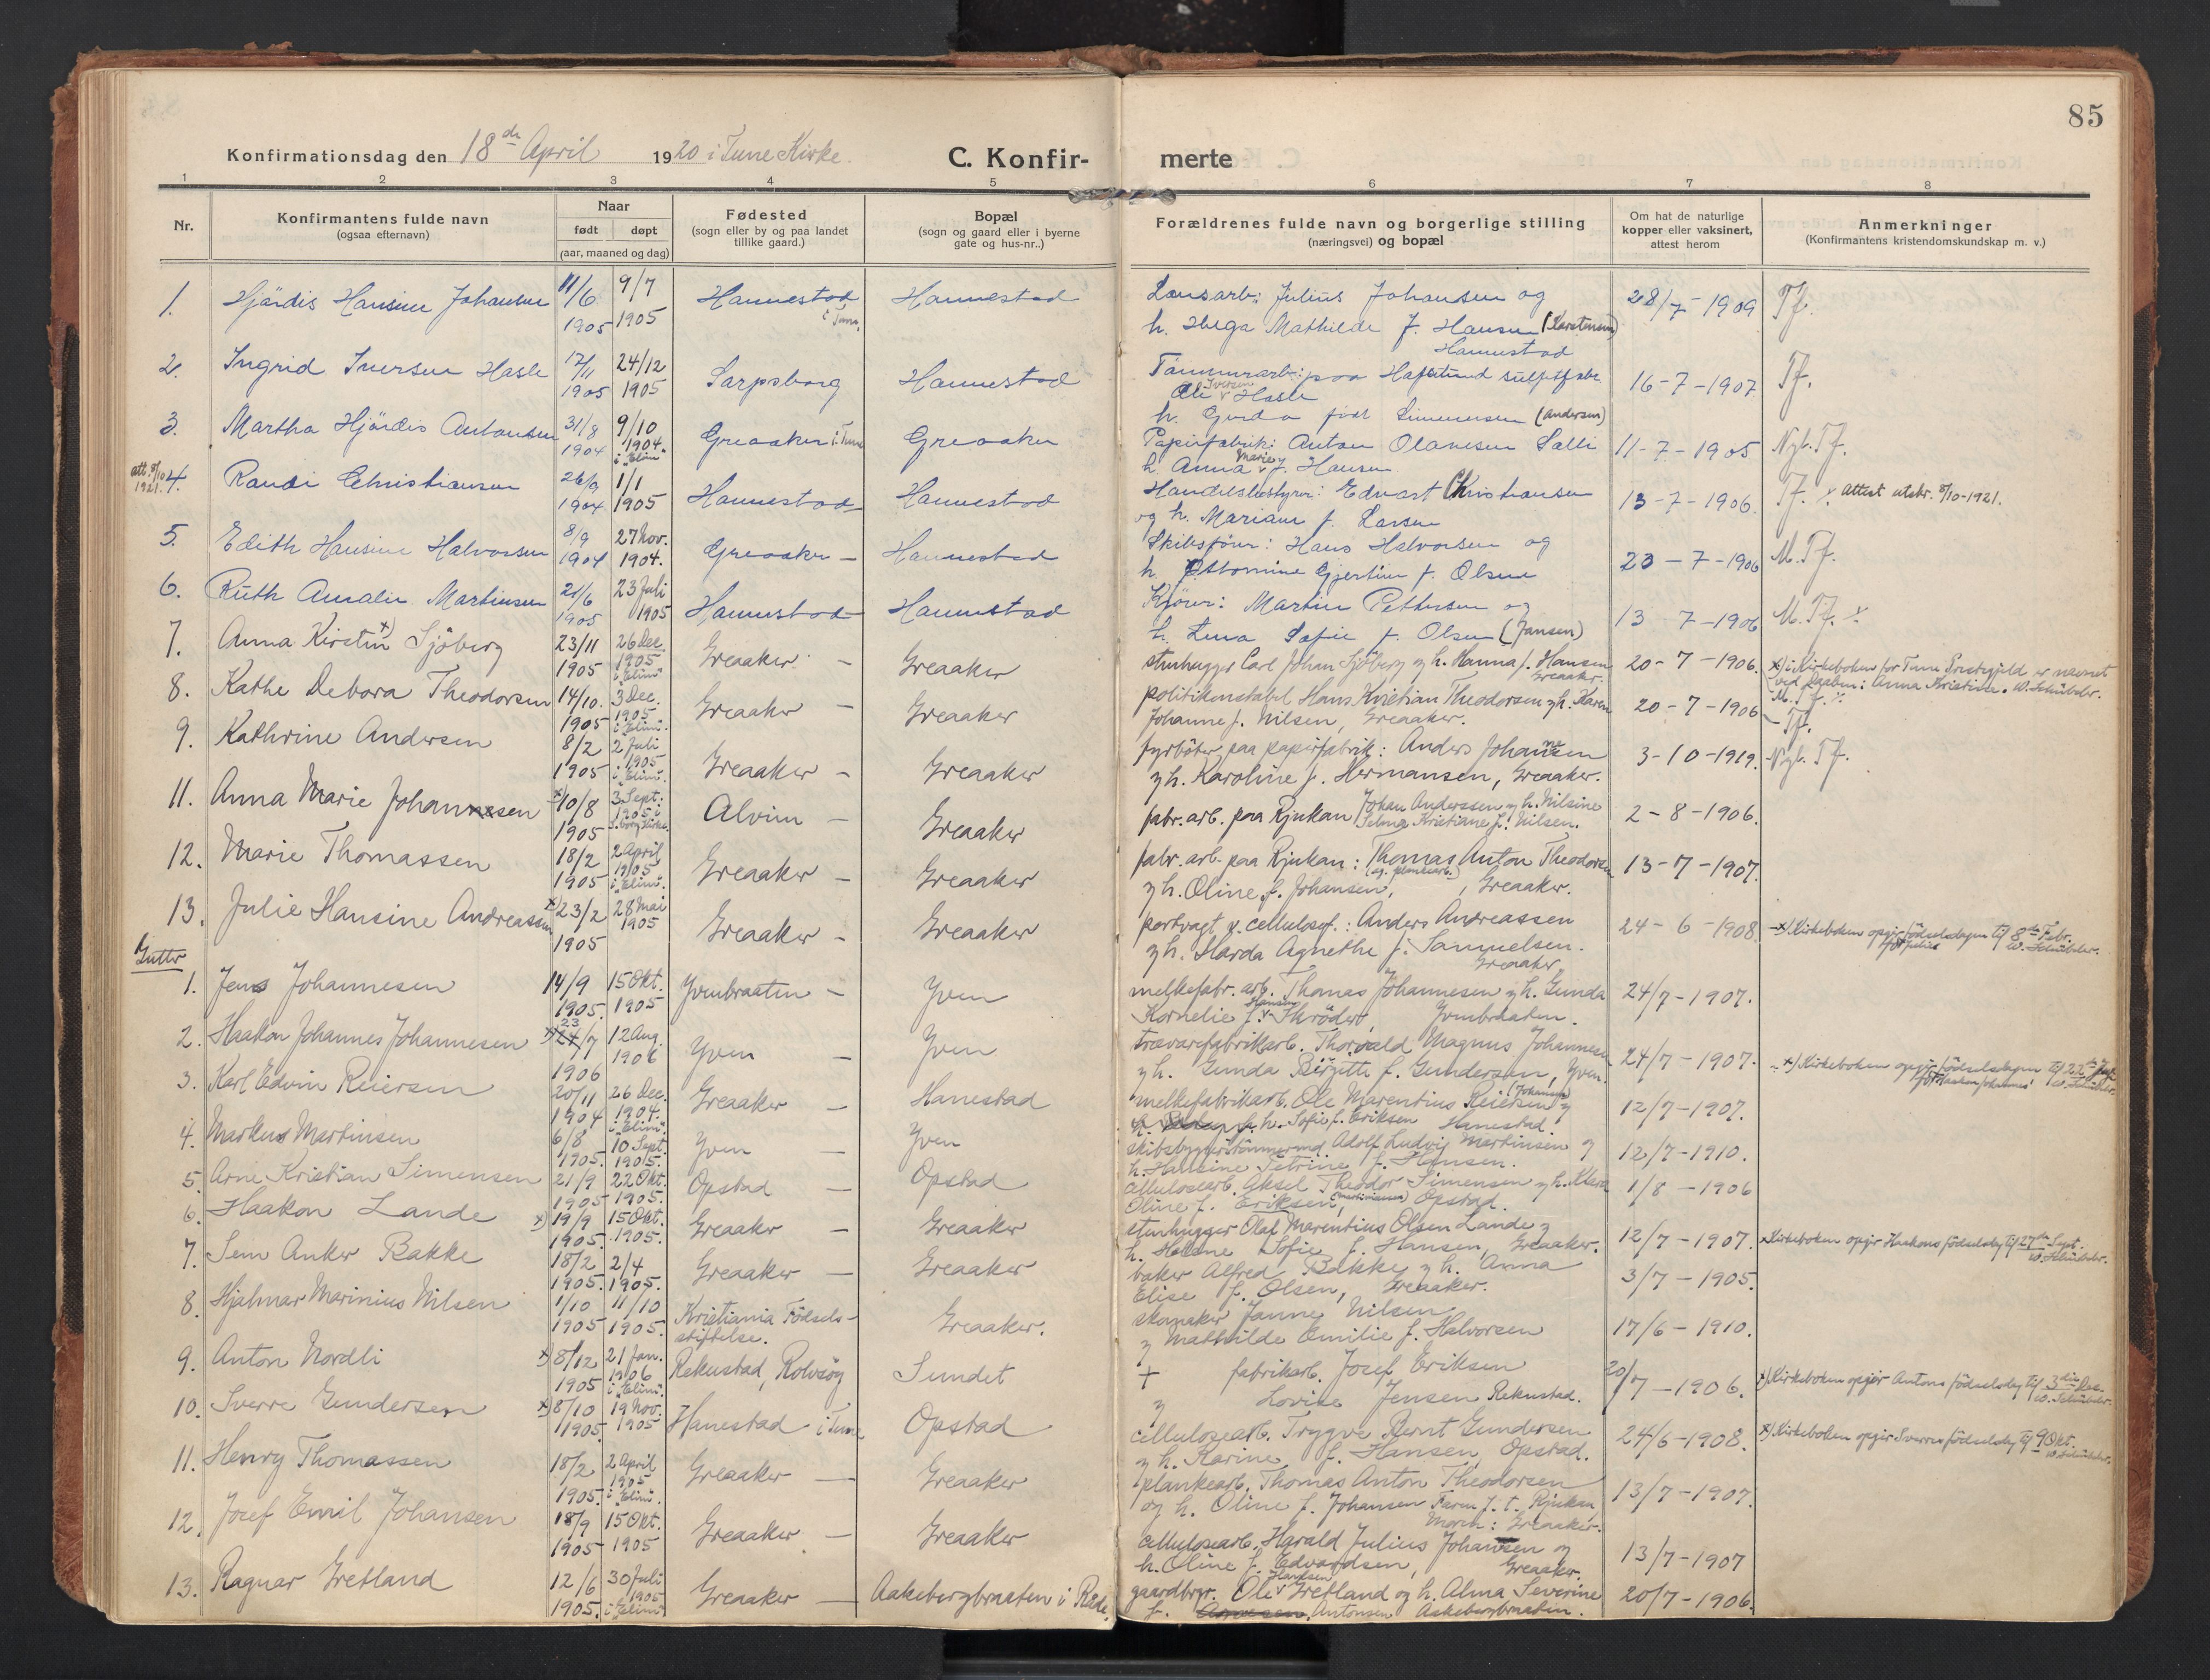 85
Konfirmationsdag den 18de April 1920 i Tune Kirke.
C. Konfir-
merte
1 2 3 4 5 6 7 8
Nr.
Konfirmantens fulde navn
(ogsaa efternavn)
Naar
født døpt
(aar, maaned og dag)
Fødested
(sogn eller by og paa landet
tillike gaard.)
Bopæl
(sogn og gaard eller i byerne
gate og hus-nr..)
Forældrenes fulde navn og borgerlige stilling
(næringsvei) og bopæl
Om hat de naturlige
kopper eller vaksinert,
attest herom
Anmerkninger
(Konfirmantens kristendomskundskap m. v.)
1. Hjördis Hansine Johansen 11/6 1905 9/7 1905 Hannestad i Tune. Hannestad
Lensarb: Julius Johansen og
h. Helga Mathilde f. Hansen (Karstensen)
Hannestad
28/7-1909 Tf.
2. Ingrid Iversen Hasle 17/11 1905 24/12 1905 Sarpsborg Hannestad
Tømmerarb: paa Hafslund sulfitfabr.
Ole Iversen Hasle
h. Gerda født Simensen (Andersen)
16-7-1907 Tf.
3. Martha Hjördis Antonsen 31/8 1904 9/10 1904. i "Elim" Greaaker i Tune Greaaker
Papirfabrik: Anton Olavesen Salli
h. Anna Marie f. Hansen
11-7-1905 Ngb. Tf.
att. 8/10 1921.
4. Randi Christiansen 26/9 1904 1/1 1905 Hannestad Hannestad
Handelsbestyrer: Edvart Christiansen
og h. Mariane f. Larsen
13-7-1906. Tf. x Attest utskr. 8/10-1921.
5. Edith Hansine Halvorsen 8/9 1904 27 Nov. 1904. Greaaker - Hannestad
Skibsfører: Hans Halvorsen og
h. Ottomine Gjertine f. Olsen
23-7-1906 M. Tf.
6. Ruth Amalie Martinsen 21/6 1905 23 Juli 1905 Hannestad Hannestad
Kjører: Martin Pettersen og
h. Lena Sofie f. Olsen (Jansen)
13 7-1906 M. Tf. x
7. Anna Kirstin x) Sjöberg 23/11 1905 26 Dec. 1905 i "Elim" Greaaker - Greaaker
stenhugger Carl Johan Sjöberg og h. Hanna f. Hansen
Greaaker.
20-7-1906. x) i Kirkeboken for Tune Prestegjeld er nævnt
ved daaben: Anna Kristine. W. Schübeler.
8. Kathe Debora Theodorsen 14/10. 1905 3 Dec. 1905 i "Elim". Greaaker - Greaaker
politikonstabel Hans Kristian Theodorsen og h. Karen
Johanne f. Nilsen, Greaaker.
20-7-1906 - Tf.
9. Kathrine Andersen 8/2 1905 2 Juli 1905 i "Elim". Greaaker - Greaaker
fyrböter paa papirfabrik: Anders Johannesen
og h. Karoline f. Hermansen, Greaaker.
3-10-1919. Ngb. Tf.
11. Anna Marie Johannesen x) 10/8 1905 3 Sept: 1905 i S.borg Kirke. Alvim - Greaaker
fabr. arb. paa Rjukan Johan Anderssen og h. Nilsine
Selma Kristiane f. Nilsen.
2-8-1906.
12. Marie Thomassen 18/2 1905 2 April 1905 i "Elim". Greaaker - Greaaker
fabr. arb. paa Rjukan: Thomas Anton Theodorsen
og h. Oline f. Johansen, Greaaker.
13-7-1907.
13. Julie Hansine Andreassen x 23/2 1905 28 Mai 1905 Greaaker - Greaaker
portvagt v. cellulosef.: Anders Andreassen
og h. Harda Agnethe f. Samuelsen.
Greaaker.
24-6-1908. x) Kirkeboken opgir födselsdagen til 8de Febr.
for Julie W. Schübeler.
Gutter
1. Jens Johannesen 14/9 1905. 15 Okt. 1905 Yvenbraaten - Yven
melkefabr. arb. Thomas Johannesen og h. Gunda
Kornelie f. Hansen Skröder, Yvenbraaten.
24/7-1907.
2. Haakon Johannes Johannesen x) 23 24/7 1906 12 Aug. 1906 Yven - Yven
trævarefabrikarb. Thorvald Magnus Johannesen
og h. Gunda Birgitte f. Gundersen, Yven.
24/7-1907. x) Kirkeboken opgir födselsdagen til 22de Juli
for Haakon Johannes W. Schübeler
3. Karl Edvin Reiersen 20/11 1904 26 Dec. 1904. i "Elim". Greaaker - Hanestad
melkefabrikarb. Ole Marentius Reiersen og
h. Sofie f. Eriksen (Johansen) Hanestad.
12/7-1907.
4. Markus Martinsen 6/8 1905. 10 Sept 1905. Yven - Yven
skibsbygger & tømmermd. Adolf Ludvig Martinsen og
h. Hansine Petrine f. Hansen.
12/7-1910.
5. Arne Kristian Simensen 21/9 1905 22 Okt. 1905. Opstad - Opstad
cellulosearb. Aksel Theodor Simensen og h. Klara
Oline f. Eriksen, (Martiniussen) Opstad.
1/8-1906
6. Haakon Lande x) 19/9 1905. 15 Okt. 1905. Greaaker - Greaaker
stenhugger Olaf Marentius Olsen Lande og
h. Helene Sofie f. Hansen, Greaaker.
12/7-1907. x Kirkeboken opgir Haakons födselsdag til 27de Sept.
W. Schübeler.
7. Sem Anker Bakke 18/2 1905. 2/4 1905. Greaaker - Greaaker
baker Alfred Bakke og h. Anna
Elise f. Olsen, Greaaker.
3/7-1905.
8. Hjalmar Marinius Nilsen 1/10 1905 11/10 1905. Kristiania Födsels-
stiftelse. Greaaker.
skomaker Janne Nilsen
og Mathilde Emilie f. Halvorsen
17/6-1910.
9. Anton Nordli x) 8/12 1905 21 Jan. 1906 i "Elim". Rekustad, Rolvsög Sundet
+ fabrikarb. Josef Eriksen
og Lovise Jensen Rekustad.
20/7-1906. x) Kirkeboken opgir Antons födselsdag til 3die Dec.
W. Schübeler.
10. Sverre Gundersen x) 8/10 1905. 19 Nov. 1905 Hanestad i Tune Opstad
cellulosearb. Trygve Bernt Gundersen
og h. Karine f. Hansen, Opstad.
24/6-1908. x) Kirkeboken opgir Sverres födselsdag til 9 Okt.
W. Schübeler.
11. Henry Thomassen 18/2 1905. 2 April 1905 i "Elim". Greaaker - Greaaker
plankearb. Thomas Anton Theodorsen
og h. Oline f. Johansen Faren f. t. Rjukan,
Moren: Greaaker.
13/7-1907.
12. Josef Emil Johansen 18/9 1905 15 Okt. 1905 Greaaker - Greaaker
cellulosearb. Harald Julius Johansen og
h. Oline f. Edvardsen, Greaaker.
13/7-1907
13. Ragnar Gretland 12/6 1905. 30 Juli 1905 i "Elim" Greaaker - Aakebergbraaten i Råde.
gaardbrgr. Ole Hansen Gretland og h. Alma Severine
f. Antonsen Aakebergbraaten.
20/7-1906.